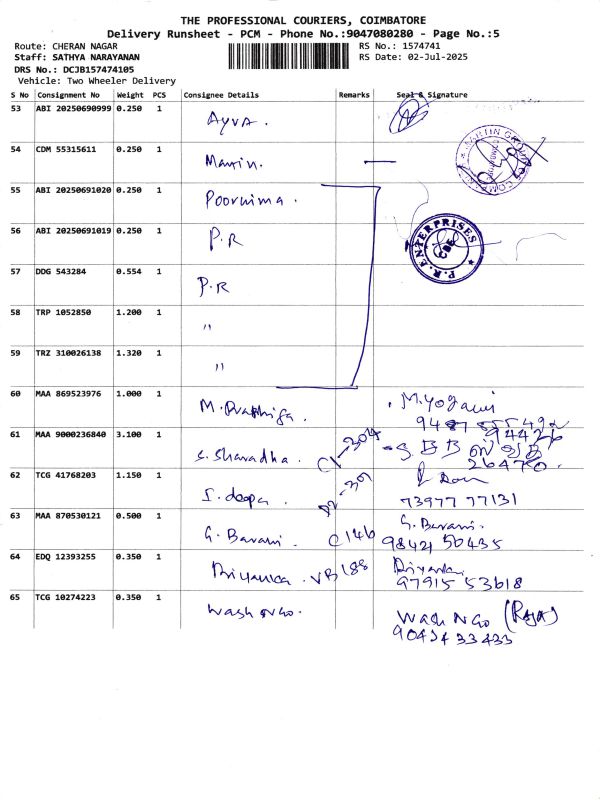 THE PROFESSIONAL COURIERS, COIMBATORE
Delivery Runsheet - PCM - Phone No.:9047080280 - Page No.:5
Route: CHERAN NAGAR
Staff: SATHYA NARAYANAN
DRS No.: DCJB157474105
Vehicle: Two Wheeler Delivery
RS No.: 1574741
RS Date: 02-Jul-2025
S No Consignment No Weight PCS Consignee Details Remarks Seal & Signature
53 ABI 20250690999 0.250 1 Ayva.
54 CDM 55315611 0.250 1 Martin. —
MARTIN GROUP
55 ABI 20250691020 0.250 1 Poornima.
56 ABI 20250691019 0.250 1 P.R
P.R. ENTERPRISES
CBE
57 DDG 543284 0.554 1 P.R
58 TRP 1052850 1.200 1 "
59 TRZ 310026138 1.320 1 "
60 MAA 869523976 1.000 1 M. Prathiga. M.yogami
61 MAA 9000236840 3.100 1 S. Sharadha. C1-304 94426
26470.
62 TCG 41768203 1.150 1 S. deepa.
73977 77131
63 MAA 870530121 0.500 1 G. Bavani. C146 G. Bavani.
98421 50435
64 EDQ 12393255 0.350 1 Priyanka. VB188 Priyanka
97915 53618
65 TCG 10274223 0.350 1 Wash NGo. Wash NGo (Raja)
90434 33433